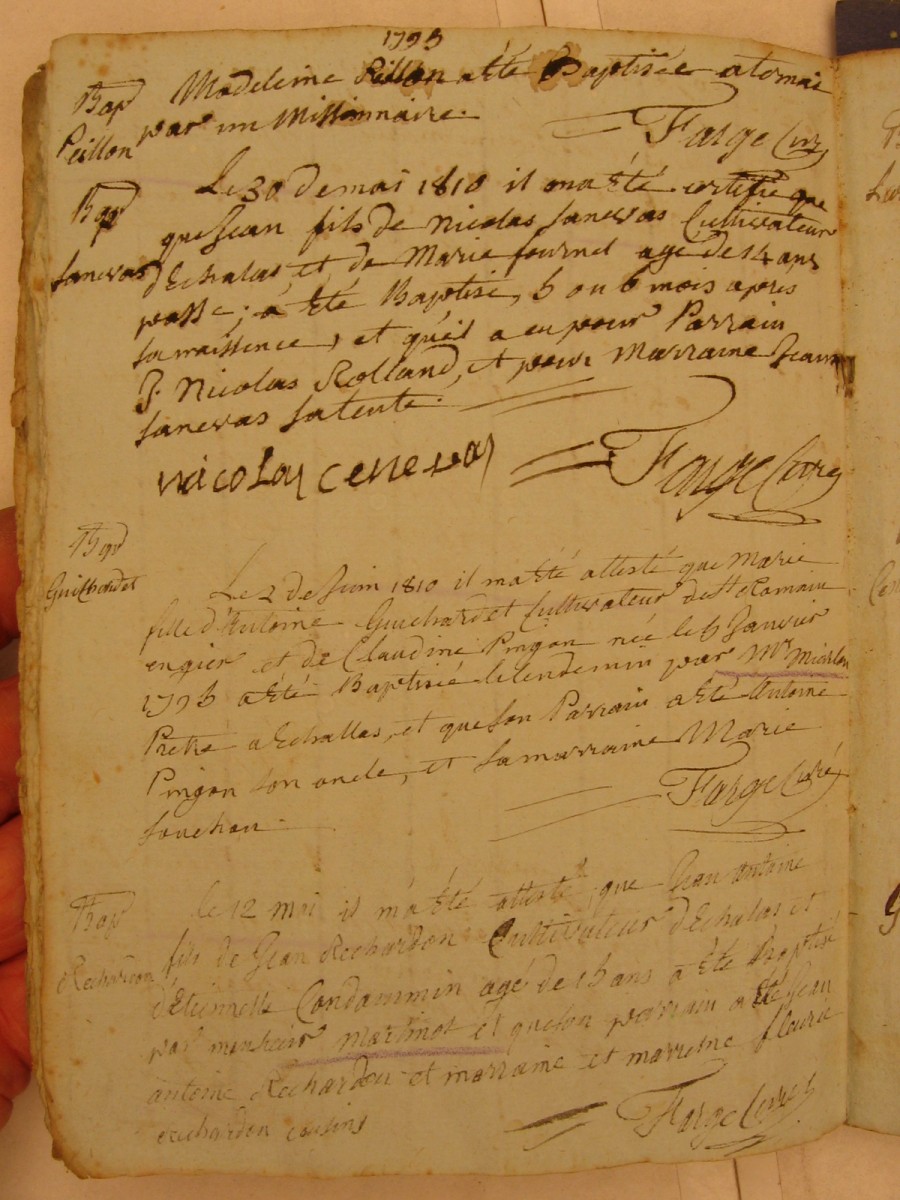 1795
Bap Madeleine Peillon a été Baptisée a
Peillon par un Missionnaire.
Farge Curé
Bap Le 30 de mai 1810 il ma été certifié que
que Jean fils de Nicolas Senevas Cultivateur
Senevas d'Echalas et de Marie fournel agé de 14 ans
passé; à été Baptisé, 5 ou 6 mois apres
sa naissence, et qu'il a eu pour Parrain
J. Nicolas Rolland, et pour Marraine Jeanne
Senevas sa tente.
nicolas cenevas
Farge Curé
Bap
Guichardet Le 2 de Juin 1810 il ma été attesté que Marie
fille d'Antoine Guichardet Cultivateur de St Romain
engier et de Claudine Pingon née le 6 Janvier
1795 a été Baptisée le lendemin par Mr
Pretre a Echallas, et que son Parrain a été Antoine
Pingon son oncle, et sa marraine Marie
souchon.
Farge Curé
Bap le 12 mai il m'a été attesté, que Jean antoine
Rechardon fils de Jean Rechardon Cultivateur d'Echalas et
d'étiennette Condammin agé de 15 ans a été Baptisé
par monsieur Martinot et que son parrain a été Jean
antoine Rechardon et marraine et marreine fleurie
rechardon cousins
Farge Curé